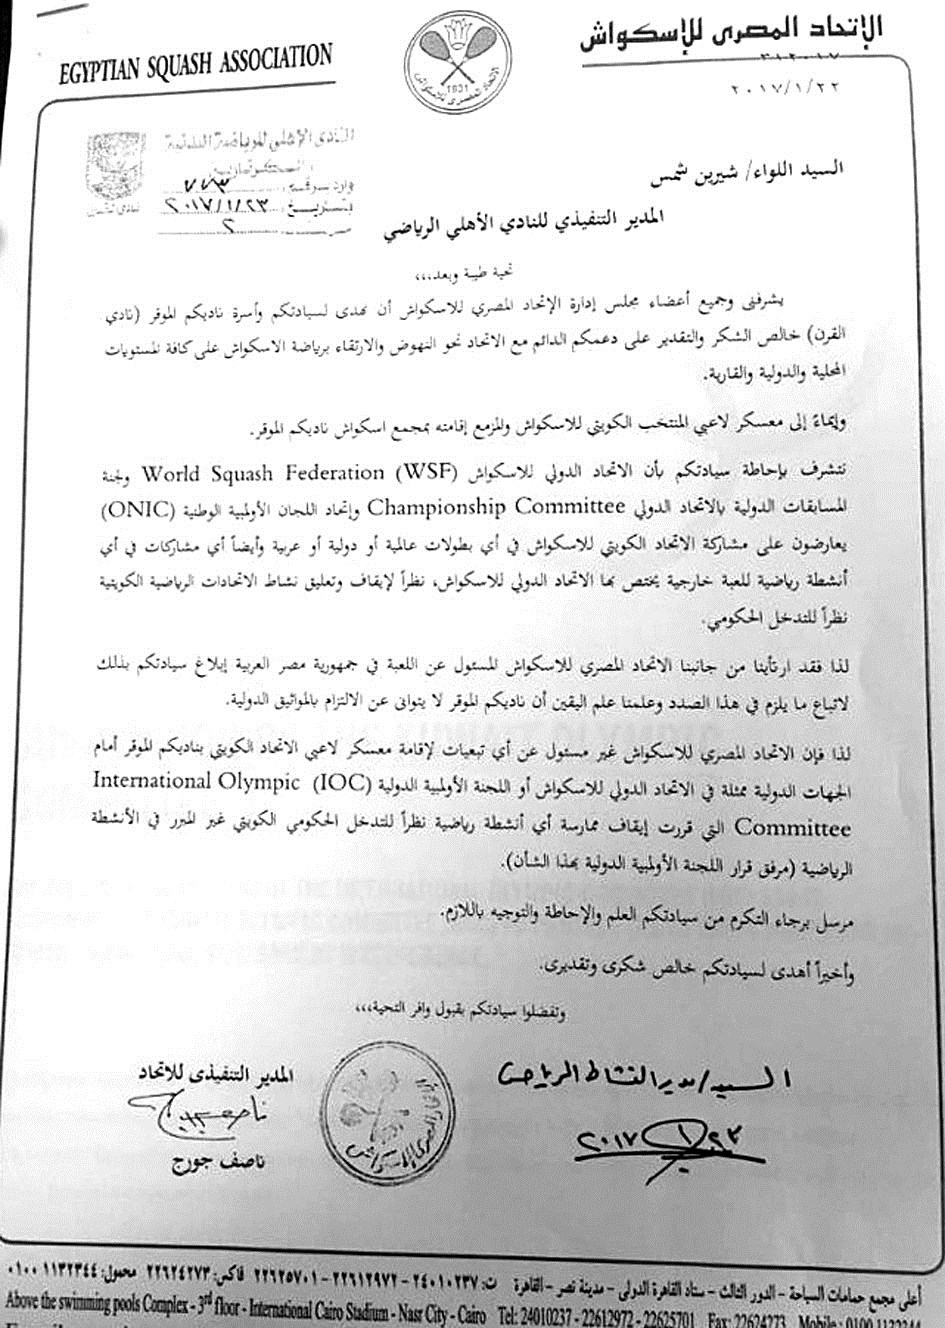 EGYPTIAN SQUASH ASSOCIATION
الإتحاد المصرى للإسكواش
1931
٢٠١٧/١/٢٢
النادى الأهلى للرياضة البدنية
وارد برقم ٧٧٣
بتاريخ ٢٠١٧/١/٢٣
السيد اللواء/ شيرين شمس
المدير التنفيذي للنادي الأهلي الرياضي
تحية طيبة وبعد،،،
يشرفنى وجميع أعضاء مجلس إدارة الإتحاد المصري للاسكواش أن نهدى لسيادتكم وأسرة ناديكم الموقر (نادي
القرن) خالص الشكر والتقدير على دعمكم الدائم مع الاتحاد نحو النهوض والارتقاء برياضة الاسكواش على كافة المستويات
المحلية والدولية والقارية.
وإيماءً إلى معسكر لاعبي المنتخب الكويتي للاسكواش والمزمع إقامته بمجمع اسكواش ناديكم الموقر.
نتشرف بإحاطة سيادتكم بأن الاتحاد الدولي للاسكواش World Squash Federation (WSF) ولجنة
المسابقات الدولية بالاتحاد الدولي Championship Committee وإتحاد اللجان الأولمبية الوطنية (ONIC)
يعارضون على مشاركة الإتحاد الكويتي للاسكواش في أي بطولات عالمية أو دولية أو عربية وأيضاً أي مشاركات في أي
أنشطة رياضية للعبة خارجية يختص بها الاتحاد الدولي للاسكواش، نظراً لإيقاف وتعليق نشاط الاتحادات الرياضية الكويتية
نظراً للتدخل الحكومي.
لذا فقد ارتأينا من جانبنا الاتحاد المصري للاسكواش المسئول عن اللعبة في جمهورية مصر العربية إبلاغ سيادتكم بذلك
لاتباع ما يلزم في هذا الصدد وعلمنا علم اليقين أن ناديكم الموقر لا يتوانى عن الالتزام بالمواثيق الدولية.
لذا فإن الاتحاد المصري للاسكواش غير مسئول عن أي تبعيات لإقامة معسكر لاعبي الاتحاد الكويتي بناديكم الموقر أمام
الجهات الدولية ممثلة في الاتحاد الدولي للاسكواش أو اللجنة الأولمبية الدولية International Olympic (IOC)
Committee التي قررت إيقاف ممارسة أي أنشطة رياضية نظراً للتدخل الحكومي الكويتي غير المبرر في الأنشطة
الرياضية (مرفق قرار اللجنة الأولمبية الدولية بهذا الشأن).
مرسل برجاء التكرم من سيادتكم العلم والإحاطة والتوجيه باللازم.
وأخيراً أهدى لسيادتكم خالص شكرى وتقديرى.
وتفضلوا سيادتكم بقبول وافر التحية،،،
المدير التنفيذى للاتحاد
ناصف جورج
السيد/ مدير النشاط الرياضى
٢٠١٧/١/٢٣
أعلى مجمع حمامات السباحة - الدور الثالث - ستاد القاهرة الدولى - مدينة نصر - القاهرة ت: ٢٤٠١٠٢٣٧ - ٢٢٦١٢٩٧٢ - ٢٢٦٢٥٧٠١ فاكس: ٢٢٦٢٤٢٧٣ محمول: ٠١٠٠١١٣٢٣٤٤
Above the swimming pools Complex - 3rd floor - International Cairo Stadium - Nasr City - Cairo Tel: 24010237 - 22612972 - 22625701 Fax: 22624273